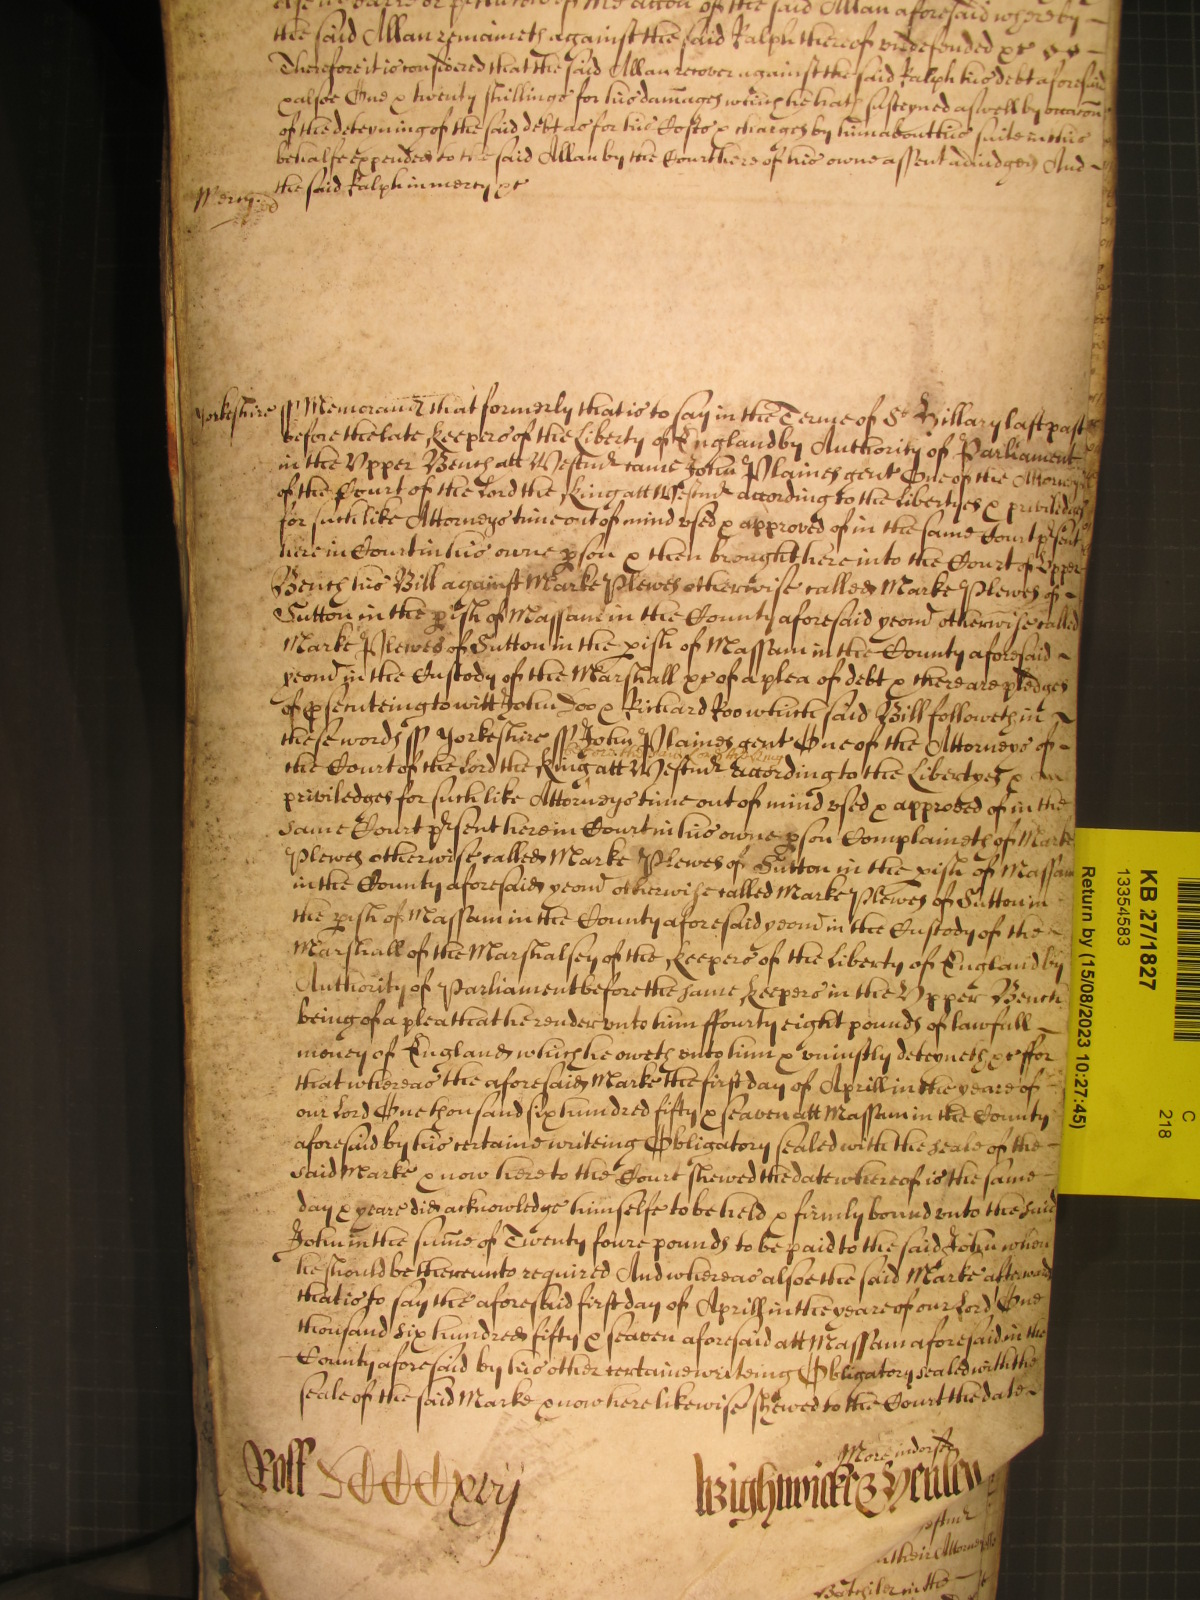 the said Allan remaineth against the said Ralph thereof undefended &c
Therefore it is considered that the said Allan recover against the said Ralph his debt aforesaid
& alsoe One & twenty shillings for his damages which he hath susteyned aswell by occacon
of the deteyning of the said debt as for his Costs & charges by him about his suite in this
behalfe expended to the said Allan by the Court here of his owne assent adiudged And
the said Ralph in mercy &c
Mercy
Yorkeshire ss Memorand that formerly that is to say in the Terme of St Hillary last past
before the late Keepers of the Liberty of England by Authority of Parliament
in the Upper Bench att Westmr came John Plaines gent One of the Attorneys
of the Court of the Lord the King att Westmr according to the Libertyes & priviledges
for such like Attorneys time out of mind used & approved of in the same Court prsent
here in Court in his owne pson & then brought here into the Court of Upper
Bench his Bill against Marke Plewes otherwise called Marke Plewes of
Sutton in the pish of Massam in the County aforesaid yeom otherwise called
Marke Plewes of Sutton in the pish of Massam in the County aforesaid
yeom in the Custody of the Marshall &c of a plea of debt & there are pledges
of psecuteing to witt John Doo & Richard Roo which said Bill followeth in
these words ss Yorkeshire ss John Plaines gent One of the Attorneys of
the Court of the Lord the King att Westmr according to the Libertyes &
priviledges for such like Attorneys time out of mind used & approved of in the
same Court prsent here in Court in his owne pson Complaineth of Marke
Plewes otherwise called Marke Plewes of Sutton in the pish of Massam
in the County aforesaid yeom otherwise called Marke Plewes of Sutton in
the pish of Massam in the County aforesaid yeom in the Custody of the
Marshall of the Marshalsey of the Keepers of the Liberty of England by
Authority of Parliament before the same Keepers in the Upper Bench
being of a plea that he render unto him ffourty eight pounds of lawfull
money of England which he oweth unto him & uniustly deteyneth &c ffor
that whereas the aforesaid Marke the first day of Aprill in the yeare of
our Lord One thousand six hundred fifty & seaven att Massam in the County
aforesaid by his certaine writeing Obligatory sealed with the seale of the
said Marke & now here to the Court shewed the date whereof is the same
day & yeare did acknowledge himselfe to be held & firmly bound unto the said
John in the sume of Twenty foure pounds to be paid to the said John when
he should be thereunto required And whereas alsoe the said Marke afterwards
that is to say the aforesaid first day of Aprill in the yeare of our Lord One
thousand six hundred fifty & seaven aforesaid att Massam aforesaid in the
County aforesaid by his other certaine writeing Obligatory sealed with the
seale of the said Marke & now here likewise shewed to the Court the date
More indorse
Roll xvij
Wightwicke & Henley
their Attorney
Batchiler in this
KB 27/1827
13354583
Return by (15/08/2023 10:27:45)
C
218